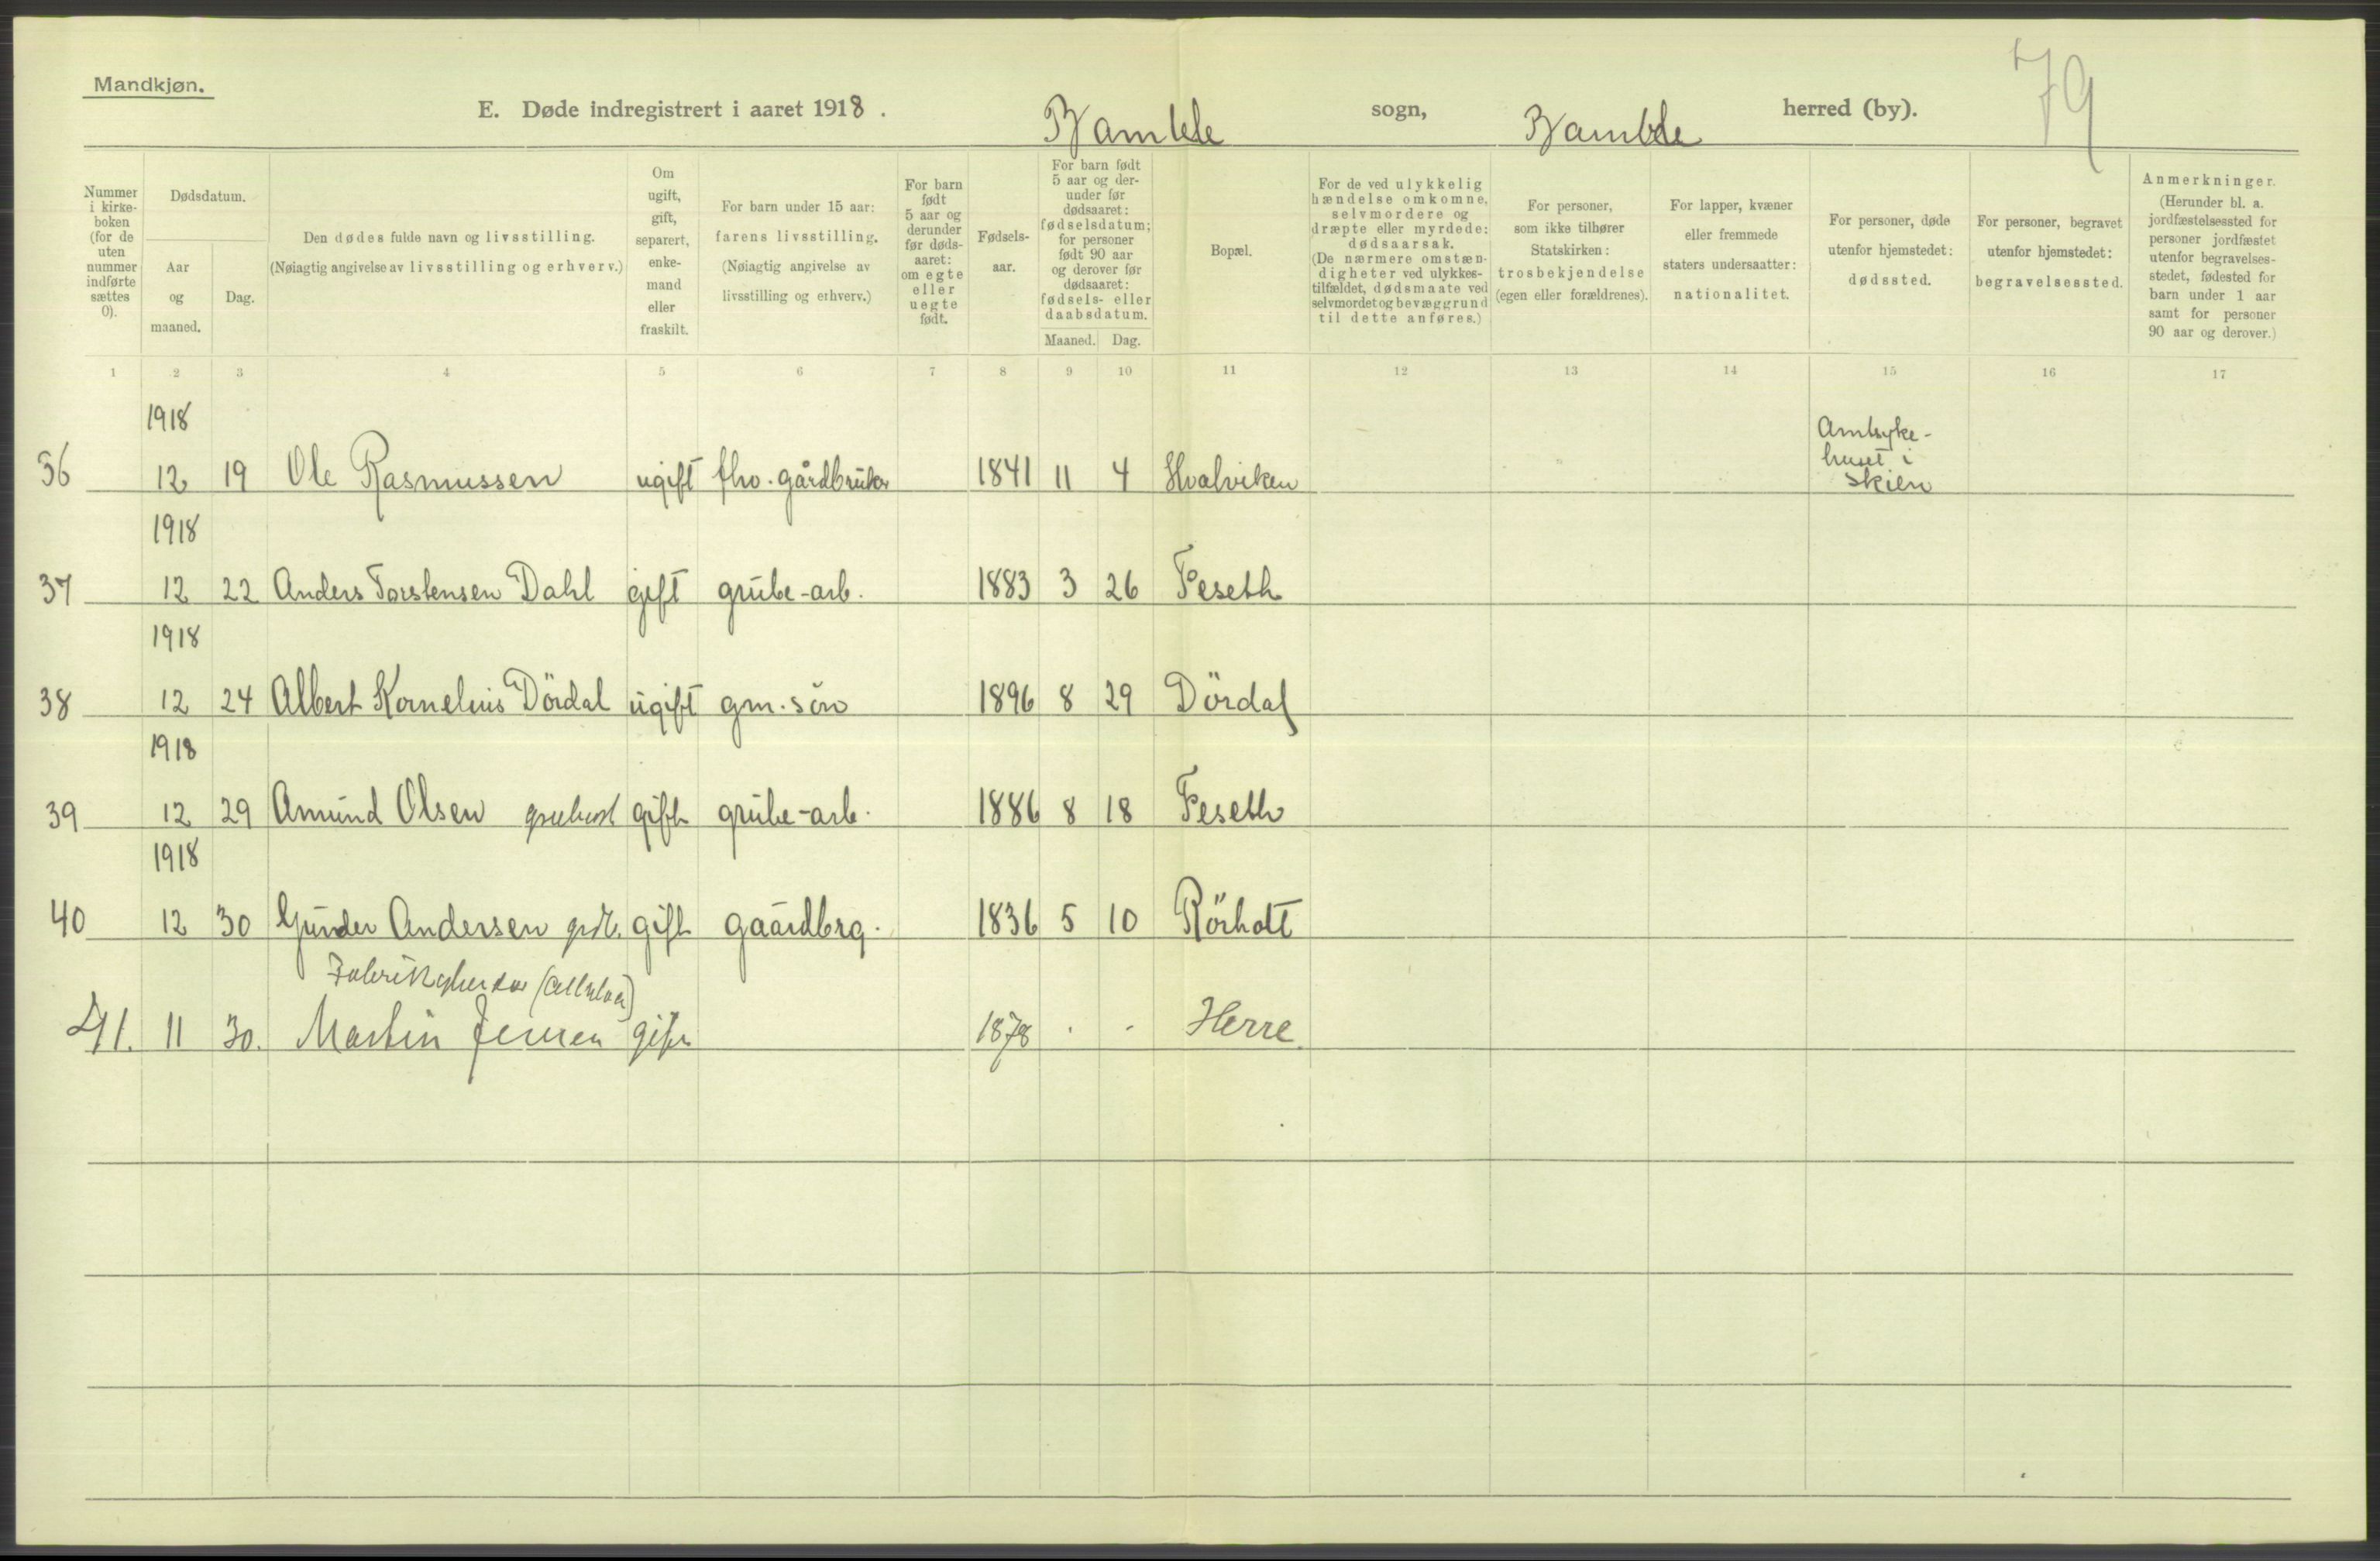 Mandkjøn.
79
E. Døde indregistrert i aaret 1918. Bamble sogn, Bamble herred (by).
Nummer i kirke-boken (for de uten nummer indførte sættes 0).
Dødsdatum.
Aar og maaned.
Dag.
Den dødes fulde navn og livsstilling.
(Nøiagtig angivelse av livsstilling og erhverv.)
Om ugift, gift, separert, enke-mand eller fraskilt.
For barn under 15 aar: farens livsstilling.
(Nøiagtig angivelse av livsstilling og erhverv.)
For barn født 5 aar og derunder før døds-aaret: om egte eller uegte født.
Fødsels-aar.
For barn født 5 aar og der-under før dødsaaret: fødselsdatum; for personer født 90 aar og derover før dødsaaret: fødsels- eller daabsdatum.
Maaned. Dag.
Bopæl.
For de ved ulykkelig hændelse omkomne, selvmordere og dræpte eller myrdede: dødsaarsak.
(De nærmere omstæn-digheter ved ulykkes-tilfældet, dødsmaate ved selvmordet og bevæggrund til dette anføres.)
For personer, som ikke tilhører Statskirken: trosbekjendelse (egen eller forældrenes).
For lapper, kvæner eller fremmede staters undersaatter: nationalitet.
For personer, døde utenfor hjemstedet: dødssted.
For personer, begravet utenfor hjemstedet: begravelsessted.
Anmerkninger.
(Herunder bl. a. jordfæstelsessted for personer jordfæstet utenfor begravelses-stedet, fødested for barn under 1 aar samt for personer 90 aar og derover.)
1 2 3 4 5 6 7 8 9 10 11 12 13 14 15 16 17
1918
36 12 19 Ole Rasmussen ugift fhv. gårdbruker 1841 11 4 Hvalviken Amtsyke-
huset i
Skien
1918
37 12 22 Anders Torstensen Dahl gift grube-arb. 1883 3 26 Feseth
1918
38 12 24 Albert Kornelius Dördal ugift gm. sön 1896 8 29 Dördal
1918
39 12 29 Amund Olsen grubearb gift grube-arb. 1886 8 18 Feseth
1918
40 12 30 Gunder Andersen grdb. gift gaardbrg. 1836 5 10 Rörholt
(Cellulose)
41. 11 30. Martin Jensen gift 1878 . - Herre.